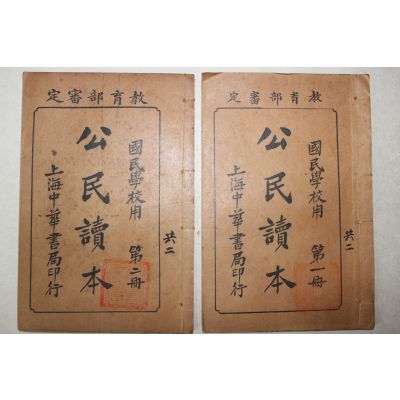 定審部育教
國民學校用 第二冊
公民讀本
上海中華書局印行
定審部育教
共二
國民學校用 第一冊
公民讀本
上海中華書局印行
共二